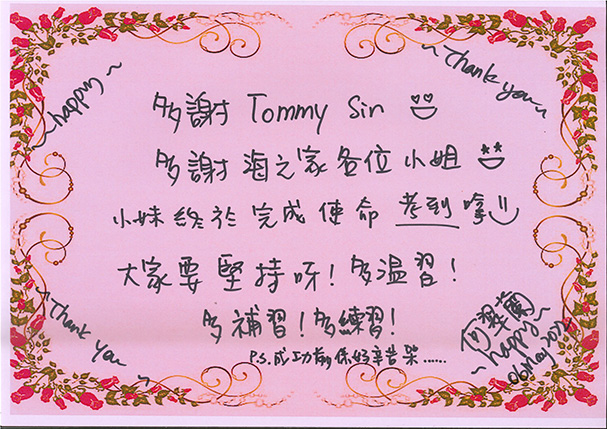 ~happy~
~Thank you~
多謝 Tommy Sin
多謝 海之家各位小姐
小妹終於完成使命 考到喇
大家要堅持呀！多溫習！
多補習！多練習！
P.S.成功都係好辛苦架......
~Thank you~
何翠蘭
~happy~